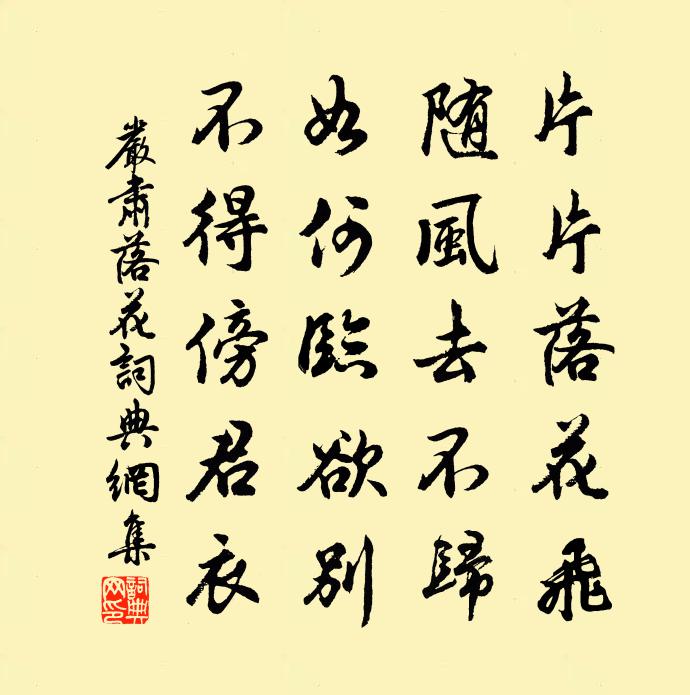 片片落花飛
随風去不歸
如何臨欲別
不得傍君衣
嚴肅落花詞典網集
詞典網印